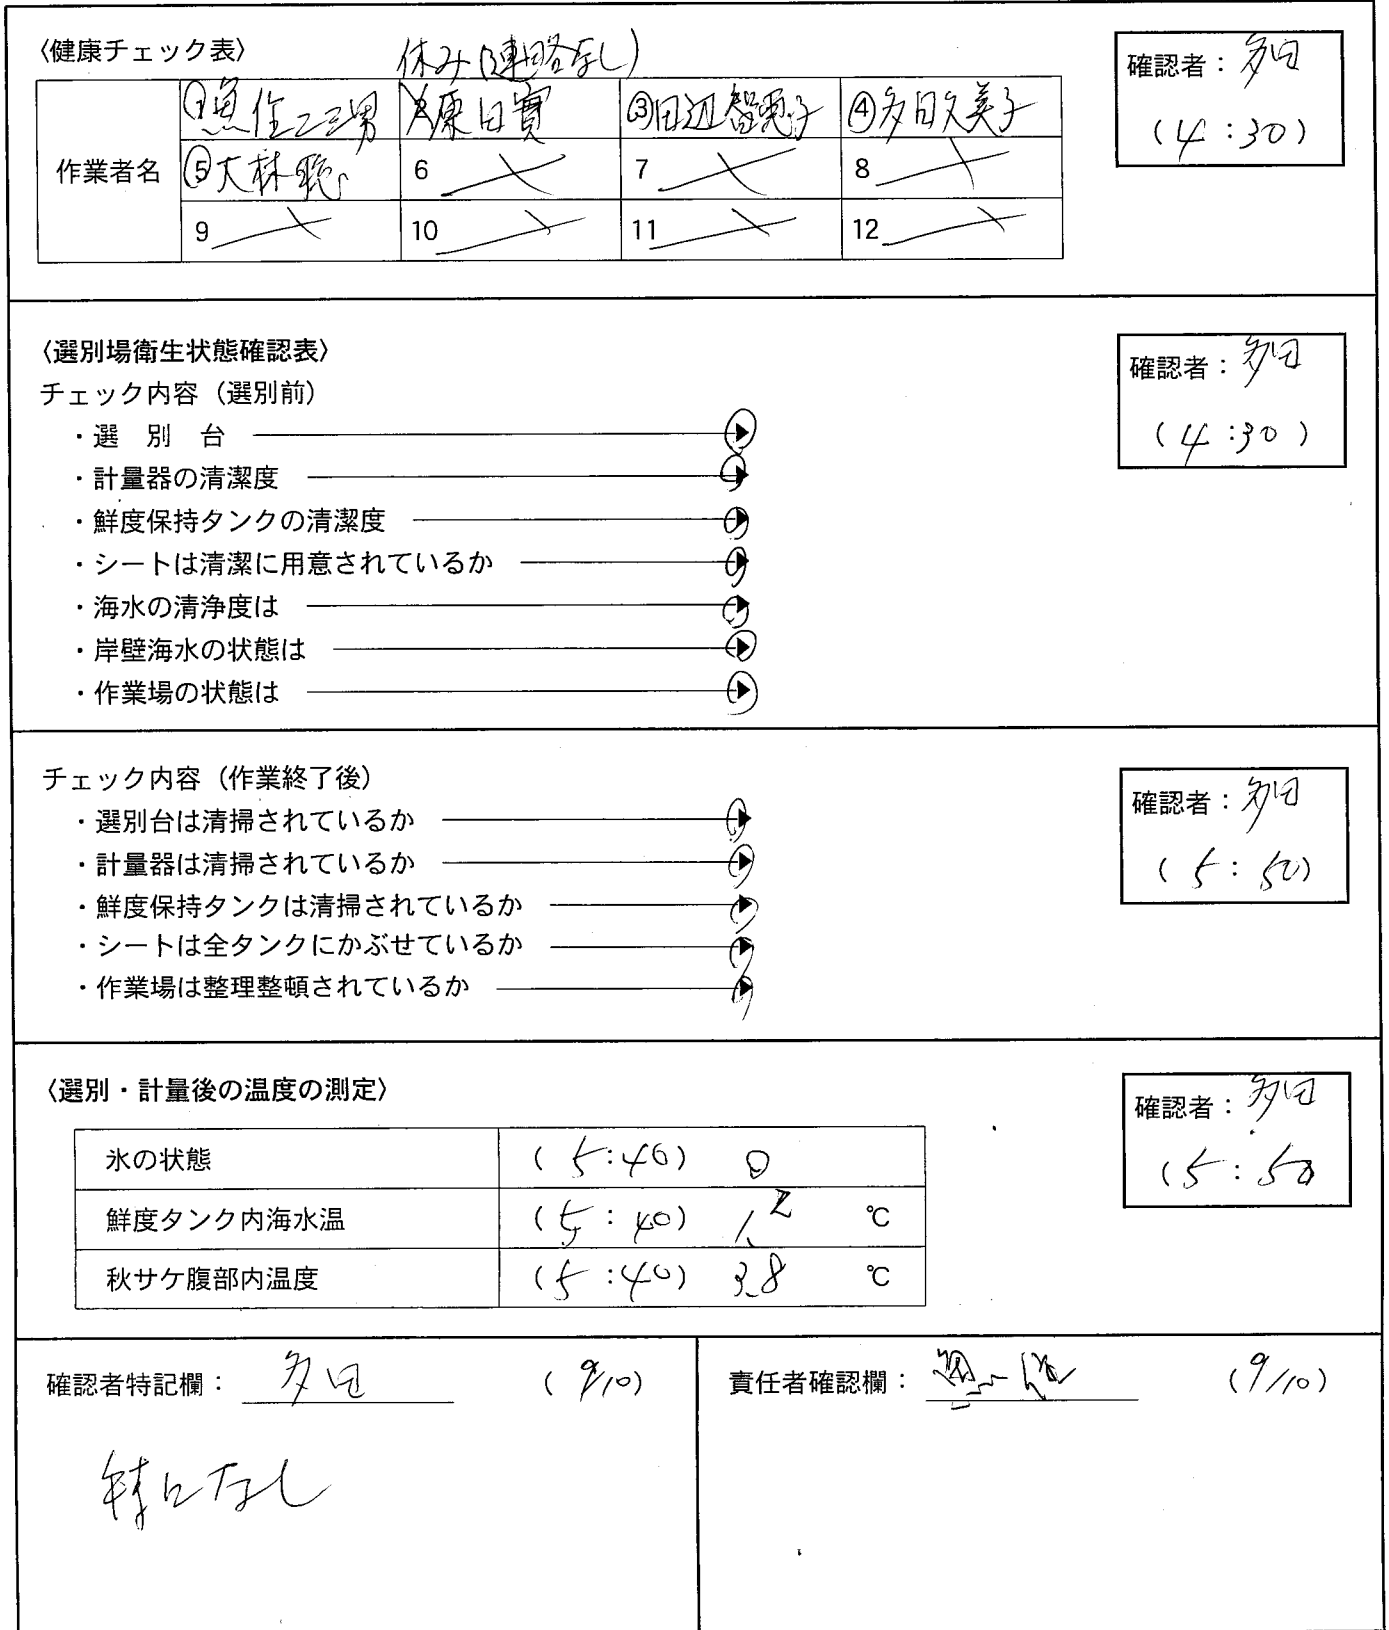 〈健康チェック表〉
休み(連絡なし)
確認者：多田
(4:30)
作業者名
①魚住二三男 2原田實 ③田辺智恵子 ④多田文美子
⑤大林聡 6 7 8
9 10 11 12
〈選別場衛生状態確認表〉
確認者：多田
(4:30)
チェック内容（選別前）
・選　別　台
・計量器の清潔度
・鮮度保持タンクの清潔度
・シートは清潔に用意されているか
・海水の清浄度は
・岸壁海水の状態は
・作業場の状態は
チェック内容（作業終了後）
確認者：多田
(5:50)
・選別台は清掃されているか
・計量器は清掃されているか
・鮮度保持タンクは清掃されているか
・シートは全タンクにかぶせているか
・作業場は整理整頓されているか
〈選別・計量後の温度の測定〉
確認者：多田
(5:50
氷の状態 (5:40) 0
鮮度タンク内海水温 (5:40) 1.2 ℃
秋サケ腹部内温度 (5:40) 3.8 ℃
確認者特記欄：多田 (9/10)
特になし
責任者確認欄： (9/10)